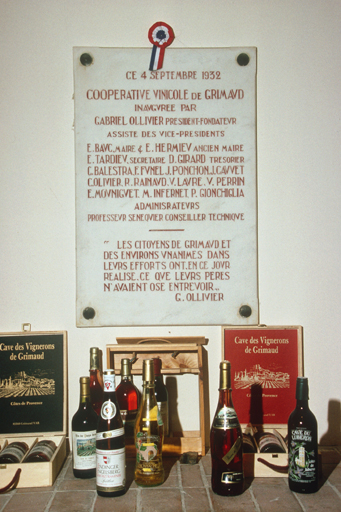 CE 4 SEPTEMBRE 1932
COOPERATIVE VINICOLE DE GRIMAVD
INAVGVREE PAR
GABRIEL OLLIVIER PRESIDENT-FONDATEVR
ASSISTE DES VICE-PRESIDENTS
E. BAVC, MAIRE & E. HERMIEV ANCIEN MAIRE
E. TARDIEV, SECRETAIRE D. GIRARD TRESORIER
C. BALESTRA, F. FVNEL, J. PONCHON, J. CAVVET
C. OLIVIER, R. RAINAVD, V. LAVRE, V. PERRIN
E. MOVNIGVET, M. INFERNET, P. GIONCHIGLIA
ADMINISRATEVRS
PROFESSEVR SENEQVIER CONSEILLER TECHNIQVE
" LES CITOYENS DE GRIMAVD ET
DES ENVIRONS VNANIMES DANS
LEVRS EFFORTS ONT, EN CE JOVR
REALISE, CE QVE LEVRS PERES
N'AVAIENT OSE ENTREVOIR "
G. OLLIVIER
Cave des Vignerons
de Grimaud
Côtes de Provence
Cave des Vignerons
de Grimaud